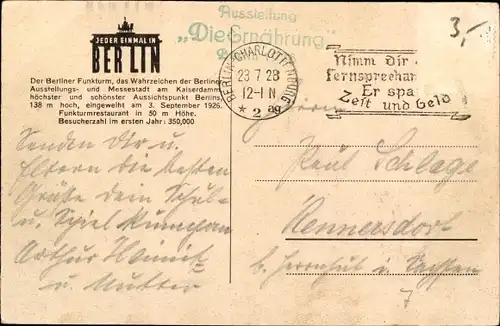 Ausstellung
„Die Ernährung"
JEDER EINMAL IN
BERLIN
3,-
BERLIN-CHARLOTTENBURG
23.7.28
12-1 N
* 2 ag
Nimm Dir
Fernsprecher
Er spa
Zeit und Geld
Der Berliner Funkturm, das Wahrzeichen der Berliner
Ausstellungs- und Messestadt am Kaiserdamm,
höchster und schönster Aussichtspunkt Berlins,
138 m hoch, eingeweiht am 3. September 1926.
Funkturmrestaurant in 50 m Höhe.
Besucherzahl im ersten Jahr: 350,000
Senden Dir u.
Eltern die besten
Grüße dein Schul-
u. Spiel Kumpan
Arthur
u. Mutter
Herrn
Paul Schlage
Hennersdorf
b. Herrnhut i. Sachsen